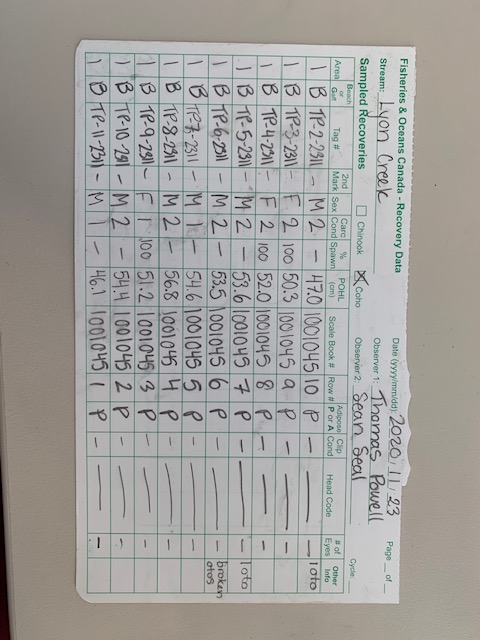 Fisheries & Oceans Canada - Recovery Data Date (yyyy/mm/dd): 2020/11/23 Page __ of __
Stream: Lyon Creek Observer 1: Thomas Powell
Sampled Recoveries ☐ Chinook ☒ Coho Observer 2: Sean Seal Cycle:
Area Beach or Gulf Tag # 2nd Mark Sex Carc Cond % Spawn POHL (cm) Scale Book # Row # Adipose P or A Clip Cond Head Code # of Eyes Other Info
1 B TP-2-2311 - M 2 - 47.0 1001045 10 P - — - 1 oto
1 B TP-3-2311 - F 2 100 50.3 1001045 9 P - — -
1 B TP-4-2311 - F 2 100 52.0 1001045 8 P - — -
1 B TP-5-2311 - M 2 - 53.6 1001045 7 P - — - 1 oto
1 B TP-6-2311 - M 2 - 53.5 1001045 6 P - — - broken otos
1 B TP-7-2311 - M 1 - 54.6 1001045 5 P - — -
1 B TP-8-2311 - M 2 - 56.8 1001045 4 P - — -
1 B TP-9-2311 - F 1 100 51.2 1001045 3 P - — -
1 B TP-10-2311 - M 2 - 54.4 1001045 2 P - — -
1 B TP-11-2311 - M 1 - 46.1 1001045 1 P - — -